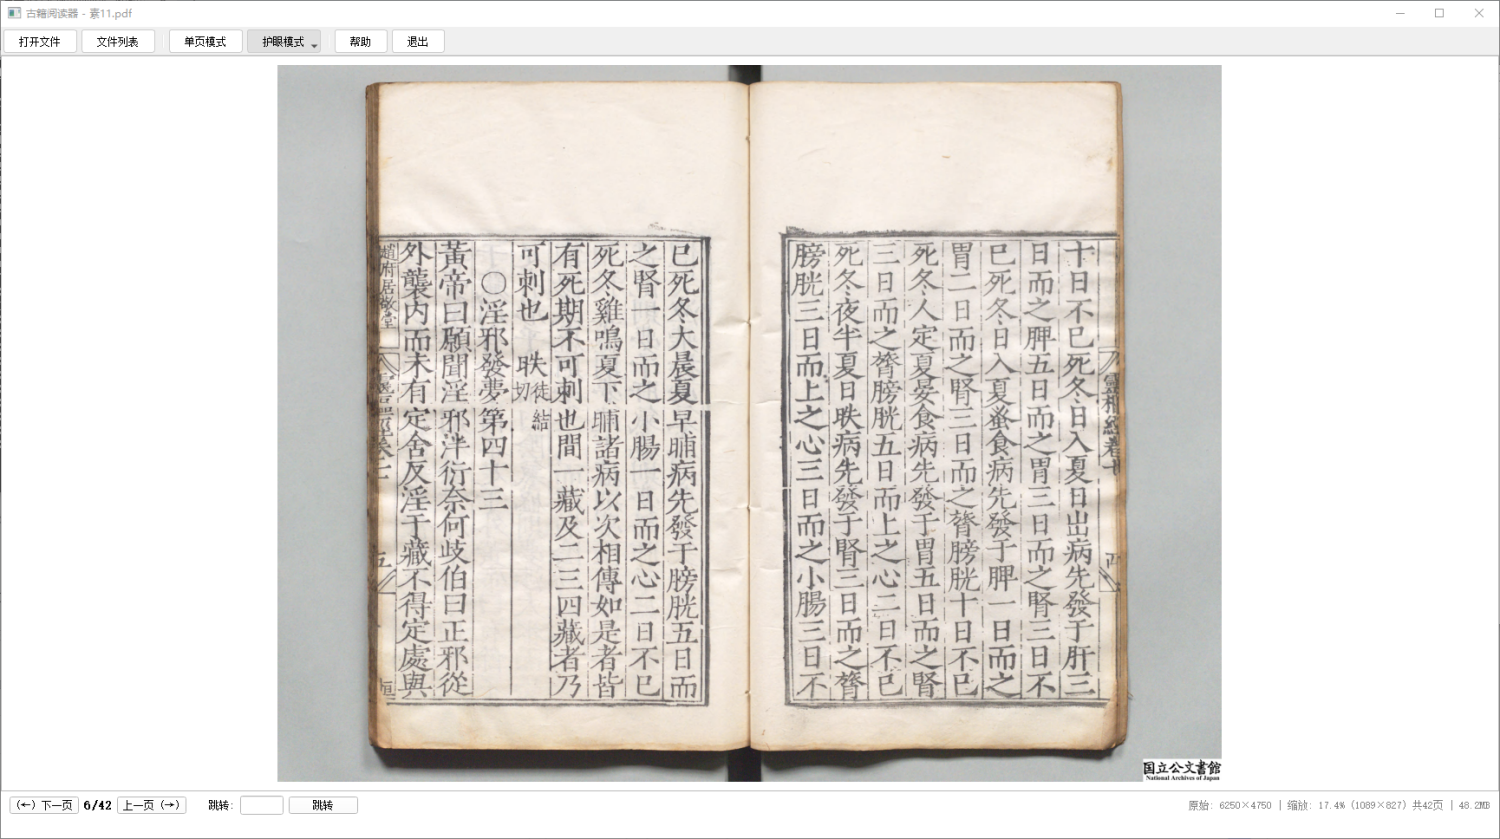 古籍阅读器 - 素11.pdf
打开文件
文件列表
单页模式
护眼模式
帮助
退出
靈樞經卷七
十日不已死冬日入夏日出病先發于肝三
日而之脾五日而之胃三日而之腎三日不
已死冬日入夏蚤食病先發于脾一日而之
胃二日而之腎三日而之膂膀胱十日不已
死冬人定夏晏食病先發于胃五日而之腎
三日而之膂膀胱五日而上之心二日不已
死冬夜半夏日昳病先發于腎三日而之膂
膀胱三日而上之心三日而之小腸三日不
已死冬大晨夏早晡病先發于膀胱五日而
之腎一日而之小腸一日而之心二日不已
死冬雞鳴夏下晡諸病以次相傳如是者皆
有死期不可刺也間一藏及二三四藏者乃
可刺也 昳徒結切
〇淫邪發夢第四十三
黃帝曰願聞淫邪泮衍奈何歧伯曰正邪從
外襲內而未有定舍反淫于藏不得定處與
趙府居敬堂
国立公文書館
National Archives of Japan
(←) 下一页
6/42
上一页 (→)
跳转:
跳转
原始: 6250×4750 | 缩放: 17.4% (1089×827) 共42页 | 48.2MB